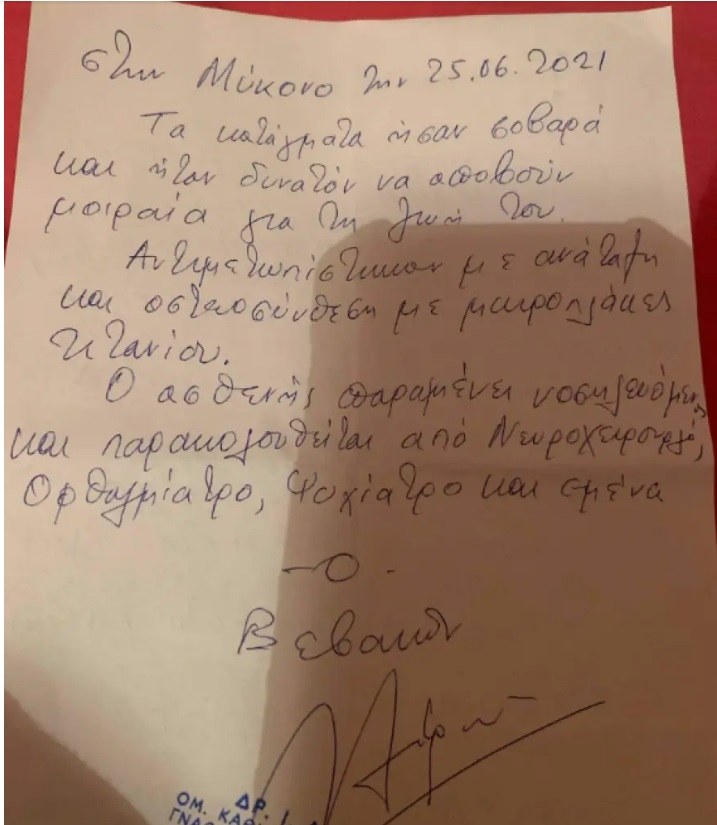 στην Μύκονο την 25.06.2021
Τα κατάγματα ήσαν σοβαρά
και ήταν δυνατόν να αποβούν
μοιραία για τη ζωή του.
Αντιμετωπίστηκαν με ανάταξη
και οστεοσύνθεση με μικροπλάκες
τιτανίου.
Ο ασθενής παραμένει νοσηλευόμενος
και παρακολουθείται από Νευροχειρουργό,
Οφθαλμίατρο, Ψυχίατρο και εμένα
—ο -
Βεβαιών
ΔΡ. Ι.
ΟΜ. ΚΑΘ